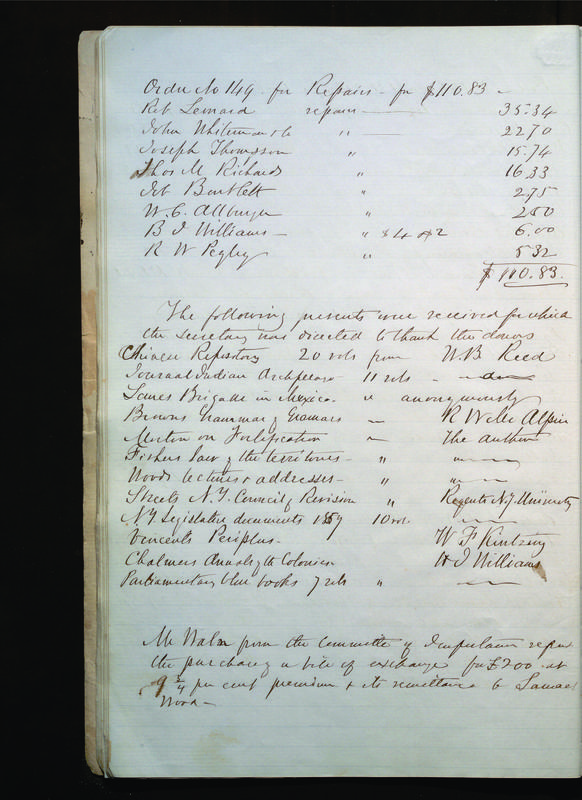 Order No 149 for Repairs - for $110.83 -
Rob. Leonard repairs — 35.34
John Whiteman & Co " — 22.70
Joseph Thomson " 15.74
Thos M. Richards " 16.33
Job Bartlett " 2.75
W. C. Allburger " 2.00
B J Williams — " $4 & $2 6.00
R W Pegley " 5.32
$110.83.
The following presents were received for which
the secretary was directed to thank the donors
Chinese Repository 20 vols from W. B. Reed
Journal Indian Archpelago 11 vols " do
Lanes Brigade in Mexico " anonymously
Browns Grammar of Gramars — R Welle
Morton on Fortification " The author
Fishers law of the territories — "
Woods lectures & addresses — "
Streets N.Y. Council of Revision " Regents N.Y. University
N.Y Legislative documents 1859 10 vols
Vincents Periplus — W F Kintzing
Chalmers Annals of the Colonies H J Williams
Parliamentary blue books 7 vols "
Mr Waln from the Committee of Importation report
the purchasing a bill of exchange for £200 at
9 3/4 per cent premium & its remittance to Samuel
Wood —